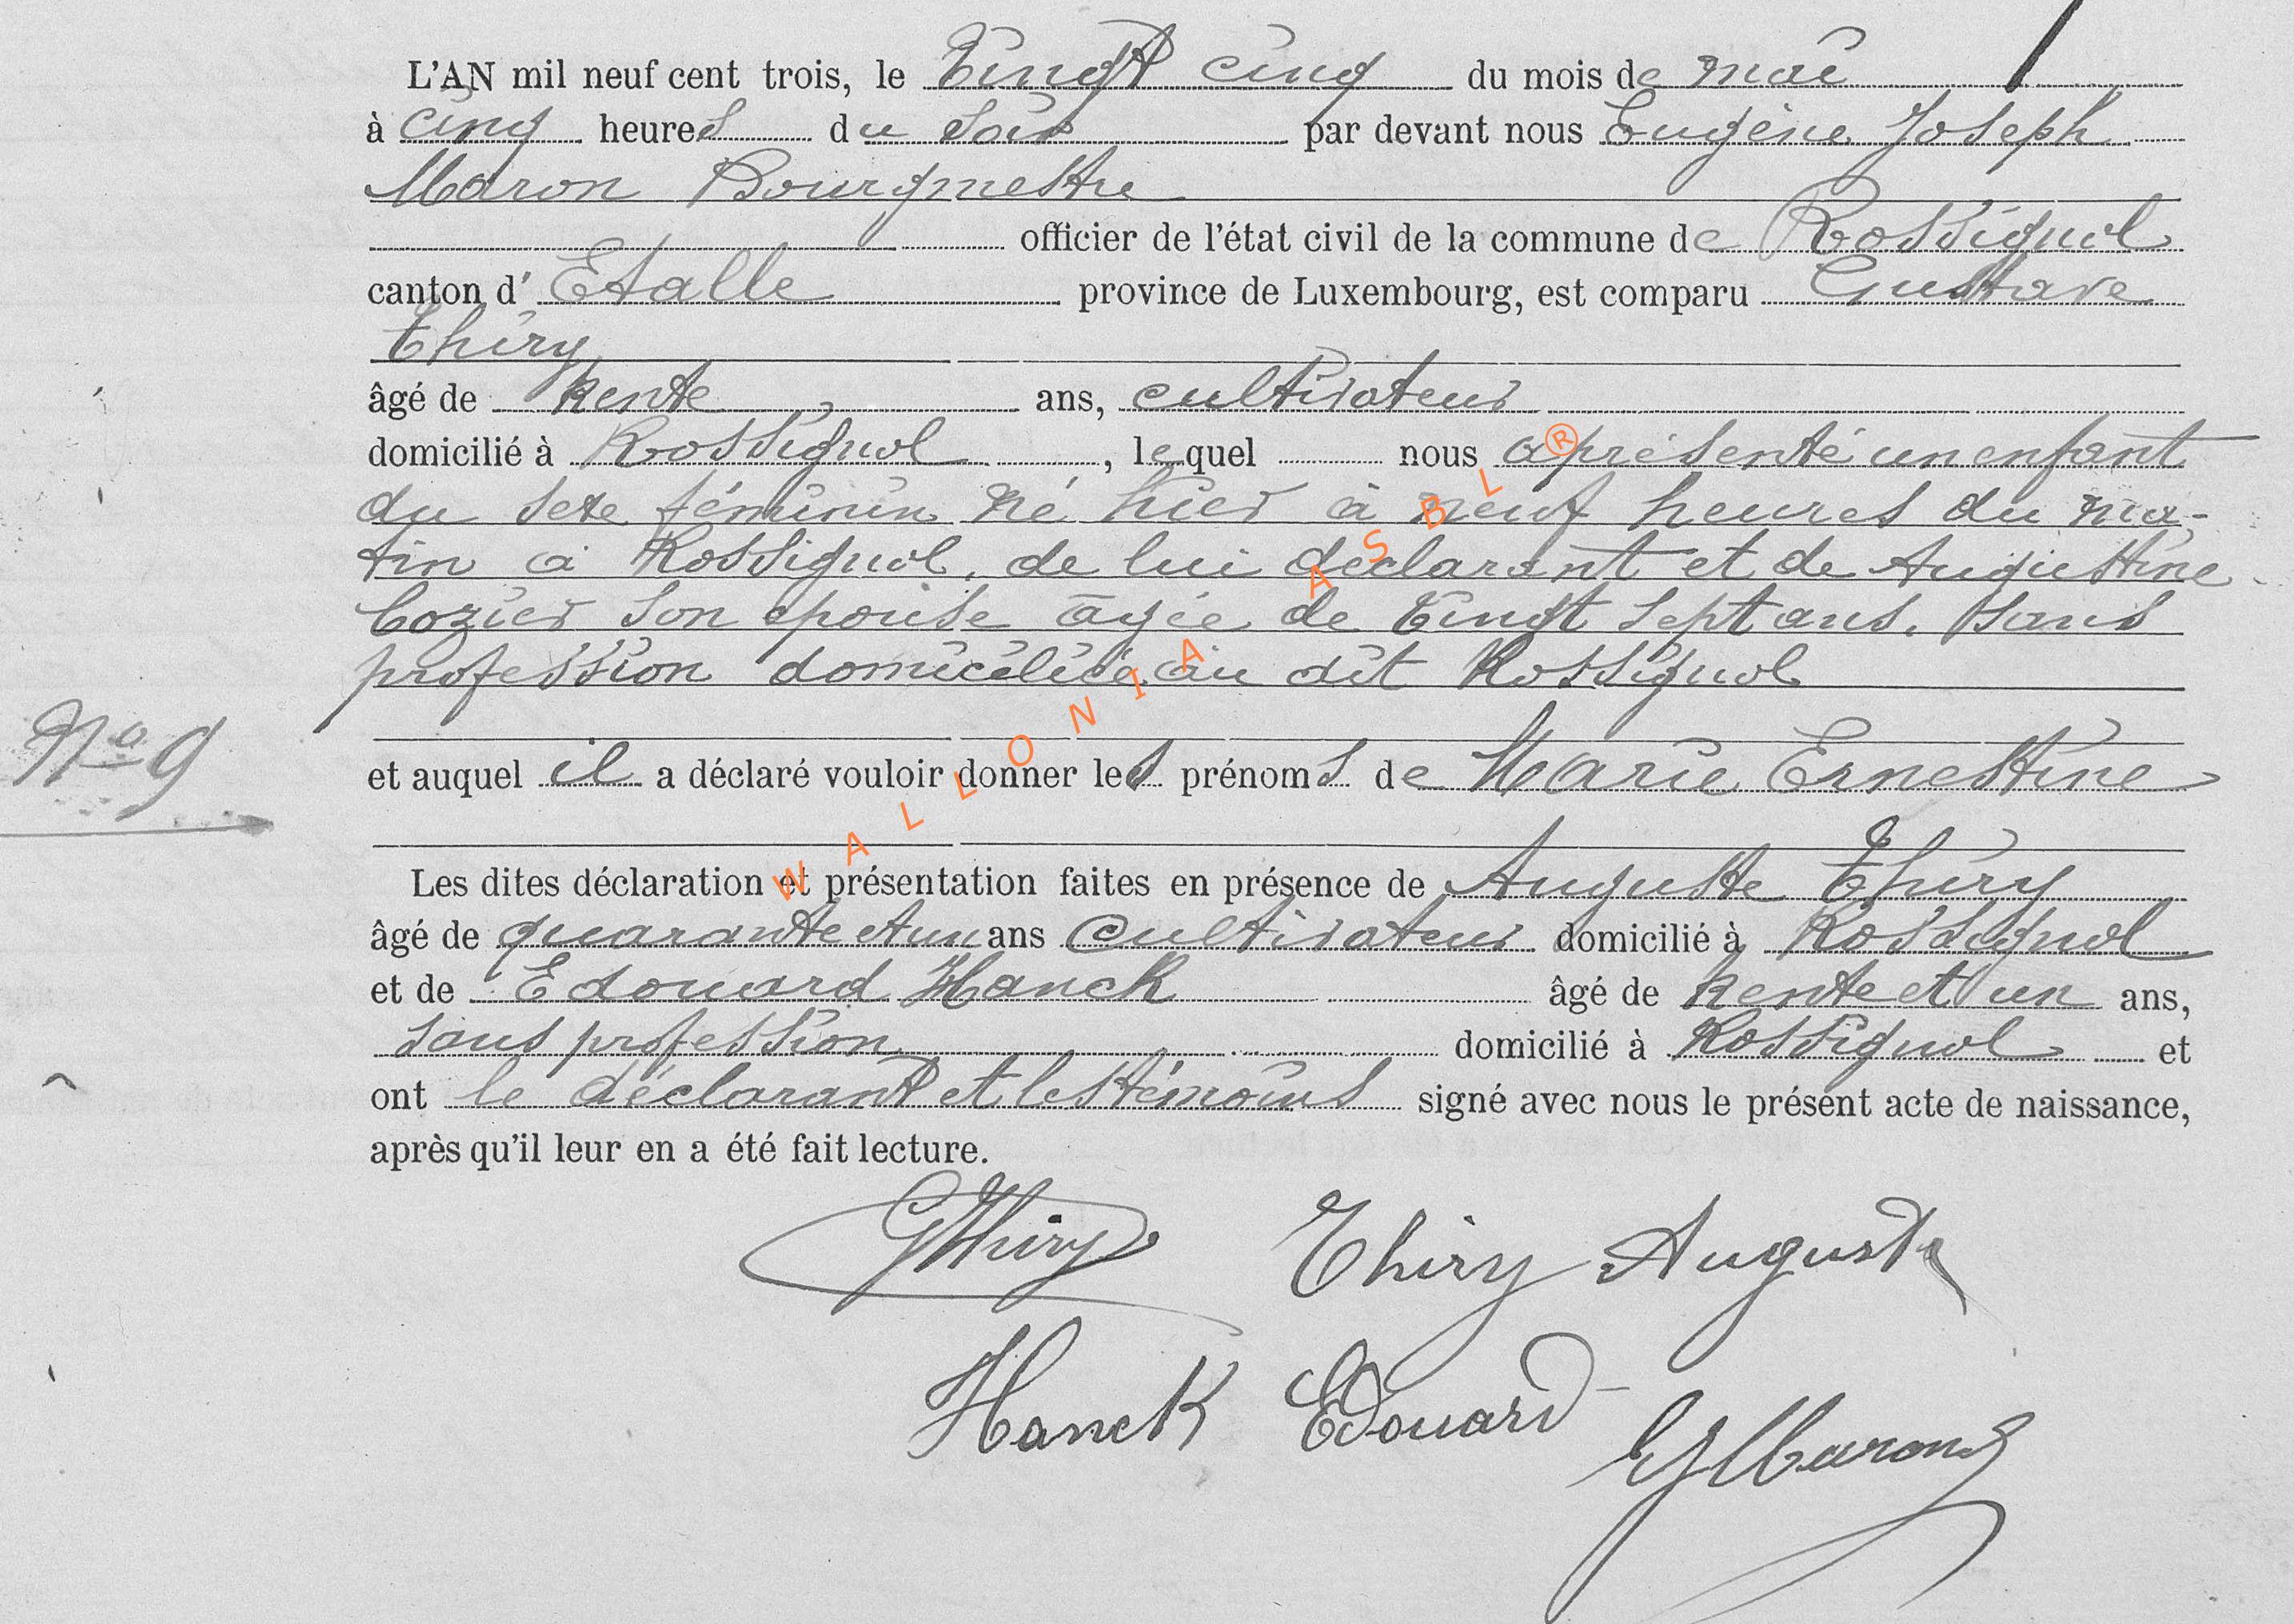 L'AN mil neuf cent trois, le Vingt cinq du mois de mai
à cinq heures du soir par devant nous Eugène Joseph
Maron Bourgmestre
officier de l'état civil de la commune de Rossignol
canton d' Etalle province de Luxembourg, est comparu Gustave
Thiry
âgé de trente ans, cultivateur
domicilié à Rossignol, lequel nous a présenté un enfant
du sexe féminin né hier à neuf heures du ma-
tin à Rossignol, de lui déclarant et de Augustine
Cozier son épouse âgée de vingt sept ans, sans
profession domiciliée au dit Rossignol
N° 9
et auquel il a déclaré vouloir donner les prénoms de Marie Ernestine
Les dites déclaration et présentation faites en présence de Auguste Thiry
âgé de quarante et un ans cultivateur domicilié à Rossignol
et de Edouard Hanck âgé de trente et un ans,
sans profession domicilié à Rossignol et
ont le déclarant et les témoins signé avec nous le présent acte de naissance,
après qu'il leur en a été fait lecture.
GThiry Thiry Auguste
Hanck Edouard
EJMaron
WALLONIA ASBL ®